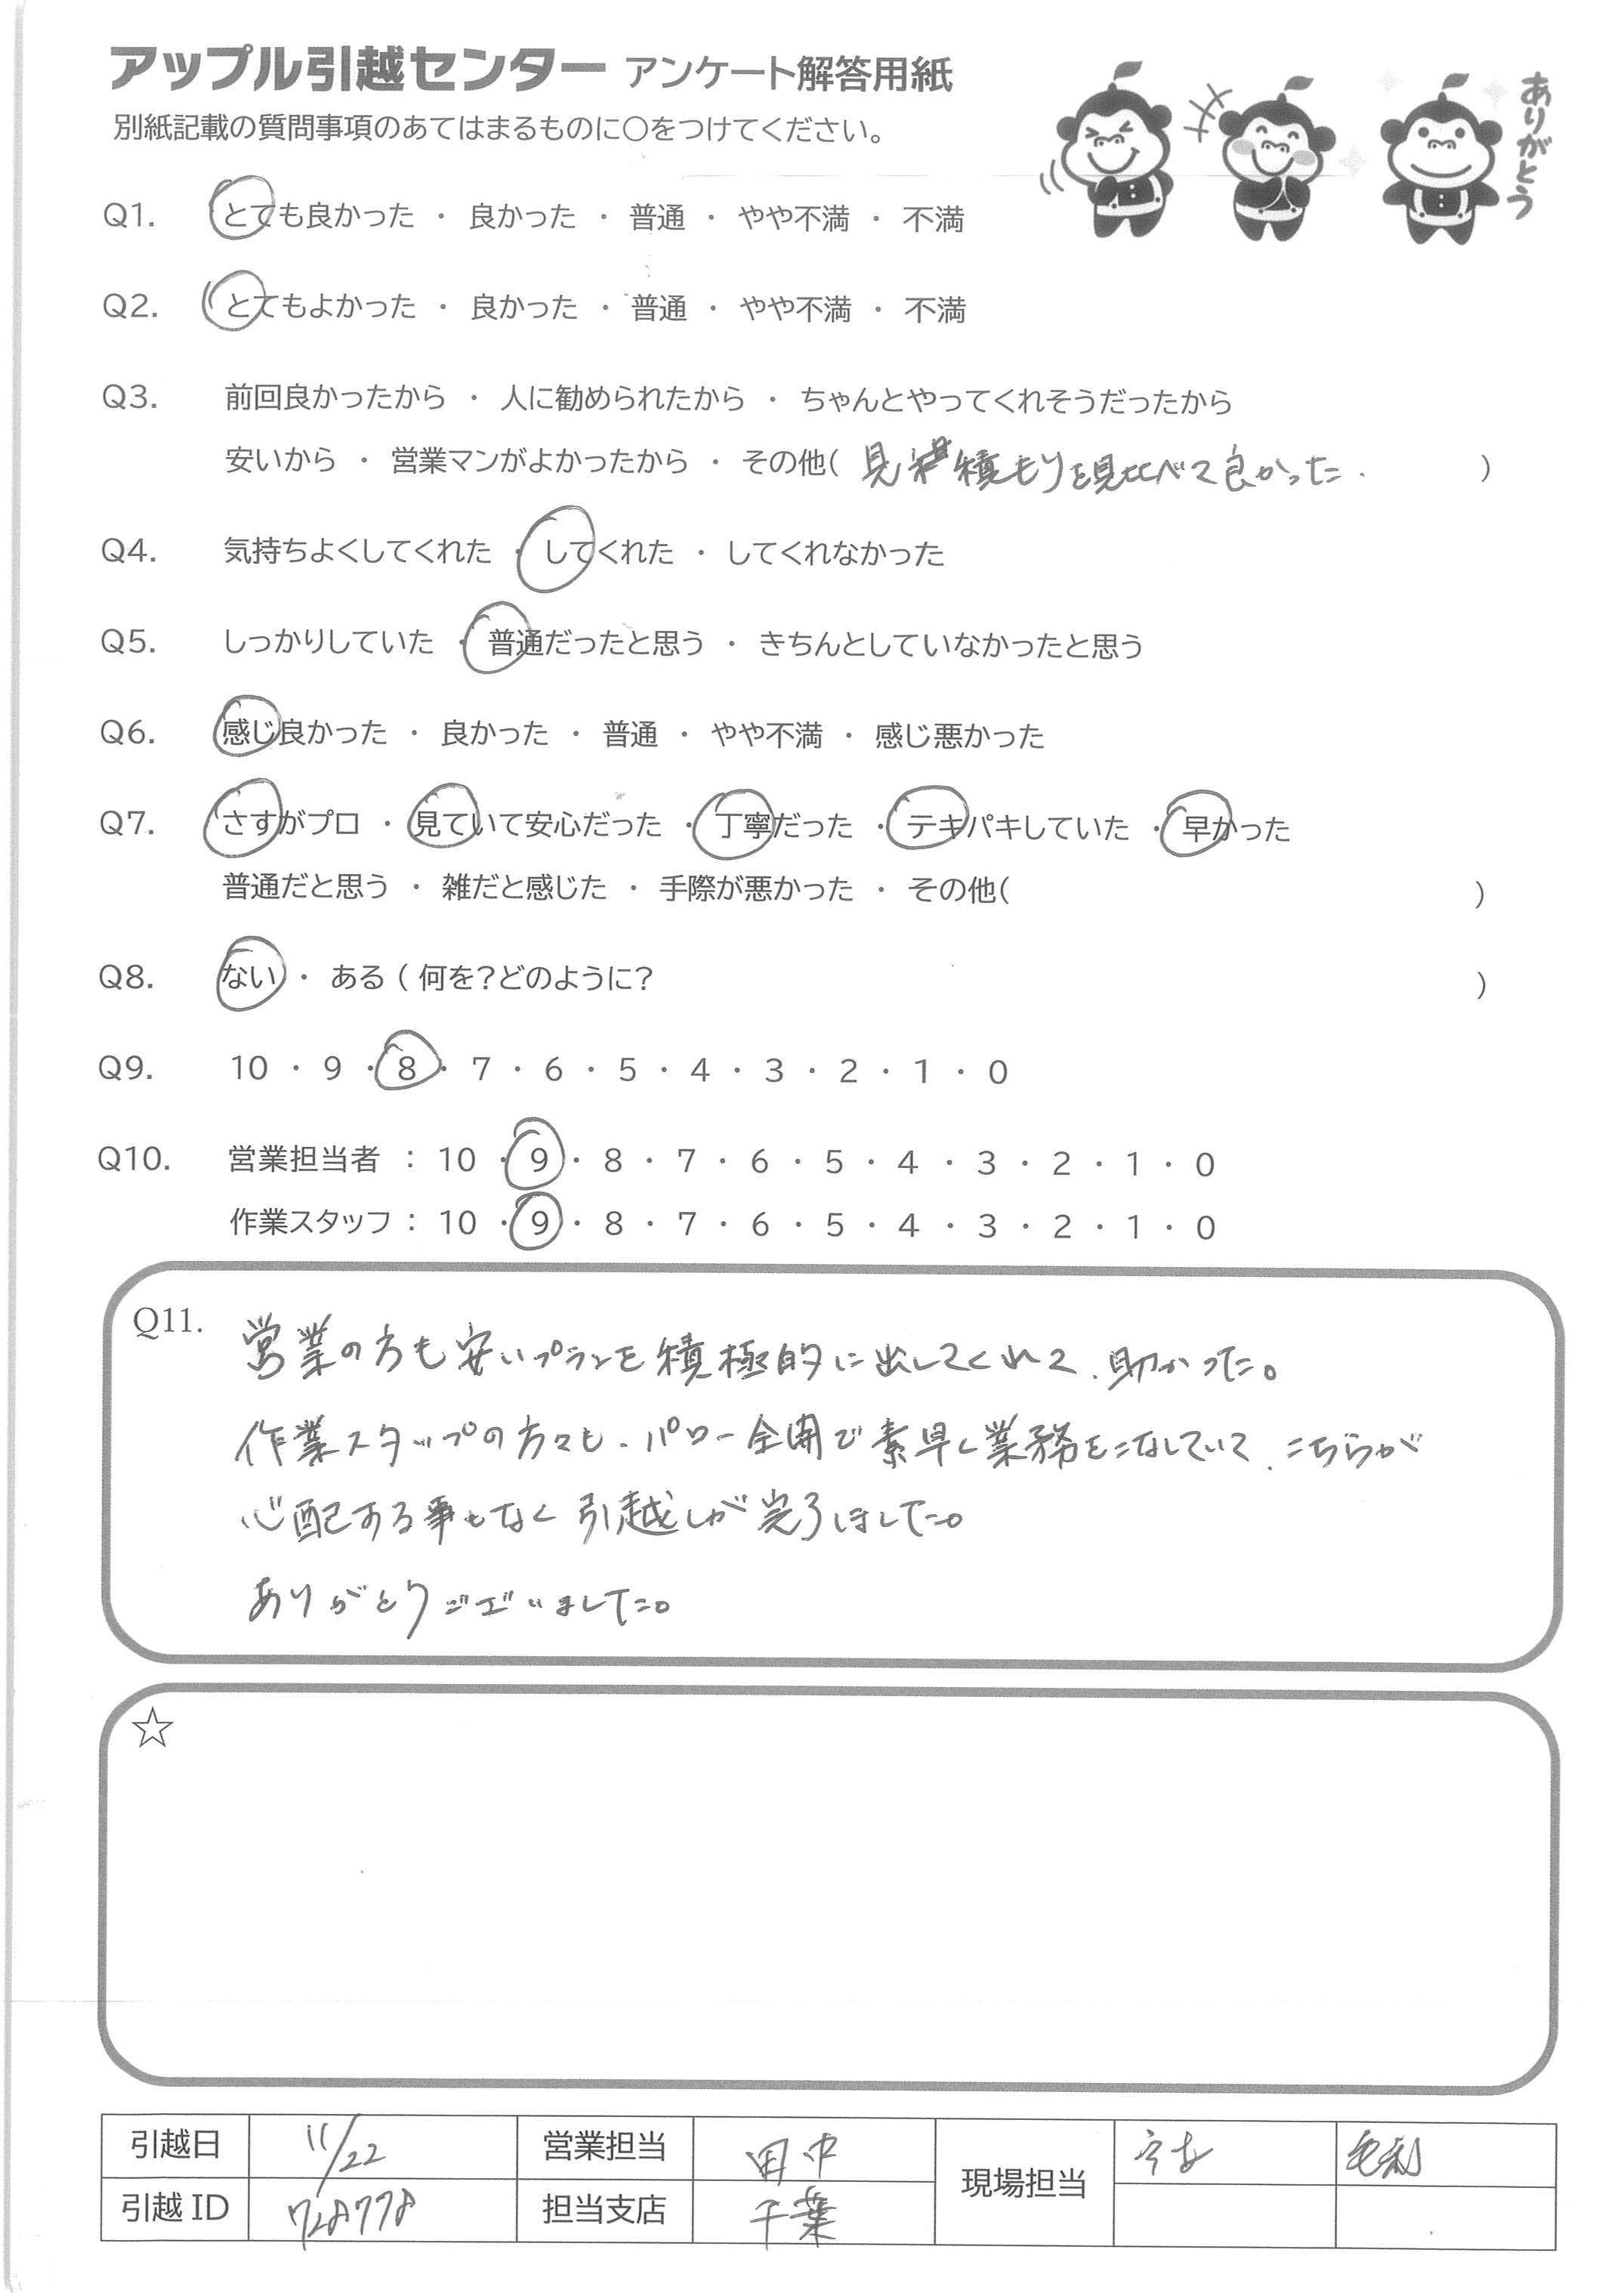 アップル引越センター アンケート解答用紙
ありがとう
別紙記載の質問事項のあてはまるものに○をつけてください。
Q1. とても良かった ・ 良かった ・ 普通 ・ やや不満 ・ 不満
Q2. とてもよかった ・ 良かった ・ 普通 ・ やや不満 ・ 不満
Q3. 前回良かったから ・ 人に勧められたから ・ ちゃんとやってくれそうだったから
安いから ・ 営業マンがよかったから ・ その他( 見積もりを見比べて良かった. )
Q4. 気持ちよくしてくれた ・ してくれた ・ してくれなかった
Q5. しっかりしていた ・ 普通だったと思う ・ きちんとしていなかったと思う
Q6. 感じ良かった ・ 良かった ・ 普通 ・ やや不満 ・ 感じ悪かった
Q7. さすがプロ ・ 見ていて安心だった ・ 丁寧だった ・ テキパキしていた ・ 早かった
普通だと思う ・ 雑だと感じた ・ 手際が悪かった ・ その他( )
Q8. ない ・ ある ( 何を?どのように? )
Q9. 10 ・ 9 ・ 8 ・ 7 ・ 6 ・ 5 ・ 4 ・ 3 ・ 2 ・ 1 ・ 0
Q10. 営業担当者 : 10 ・ 9 ・ 8 ・ 7 ・ 6 ・ 5 ・ 4 ・ 3 ・ 2 ・ 1 ・ 0
作業スタッフ : 10 ・ 9 ・ 8 ・ 7 ・ 6 ・ 5 ・ 4 ・ 3 ・ 2 ・ 1 ・ 0
Q11. 営業の方も安いプランを積極的に出してくれて、助かった。
作業スタップの方々も、パワー全開で素早く業務をこなしていて、こちらが
心配する事もなく引越しが完了しました。
ありがとうございました。
☆
引越日 11/22 営業担当 田中 現場担当 毛利
引越ID 728778 担当支店 千葉